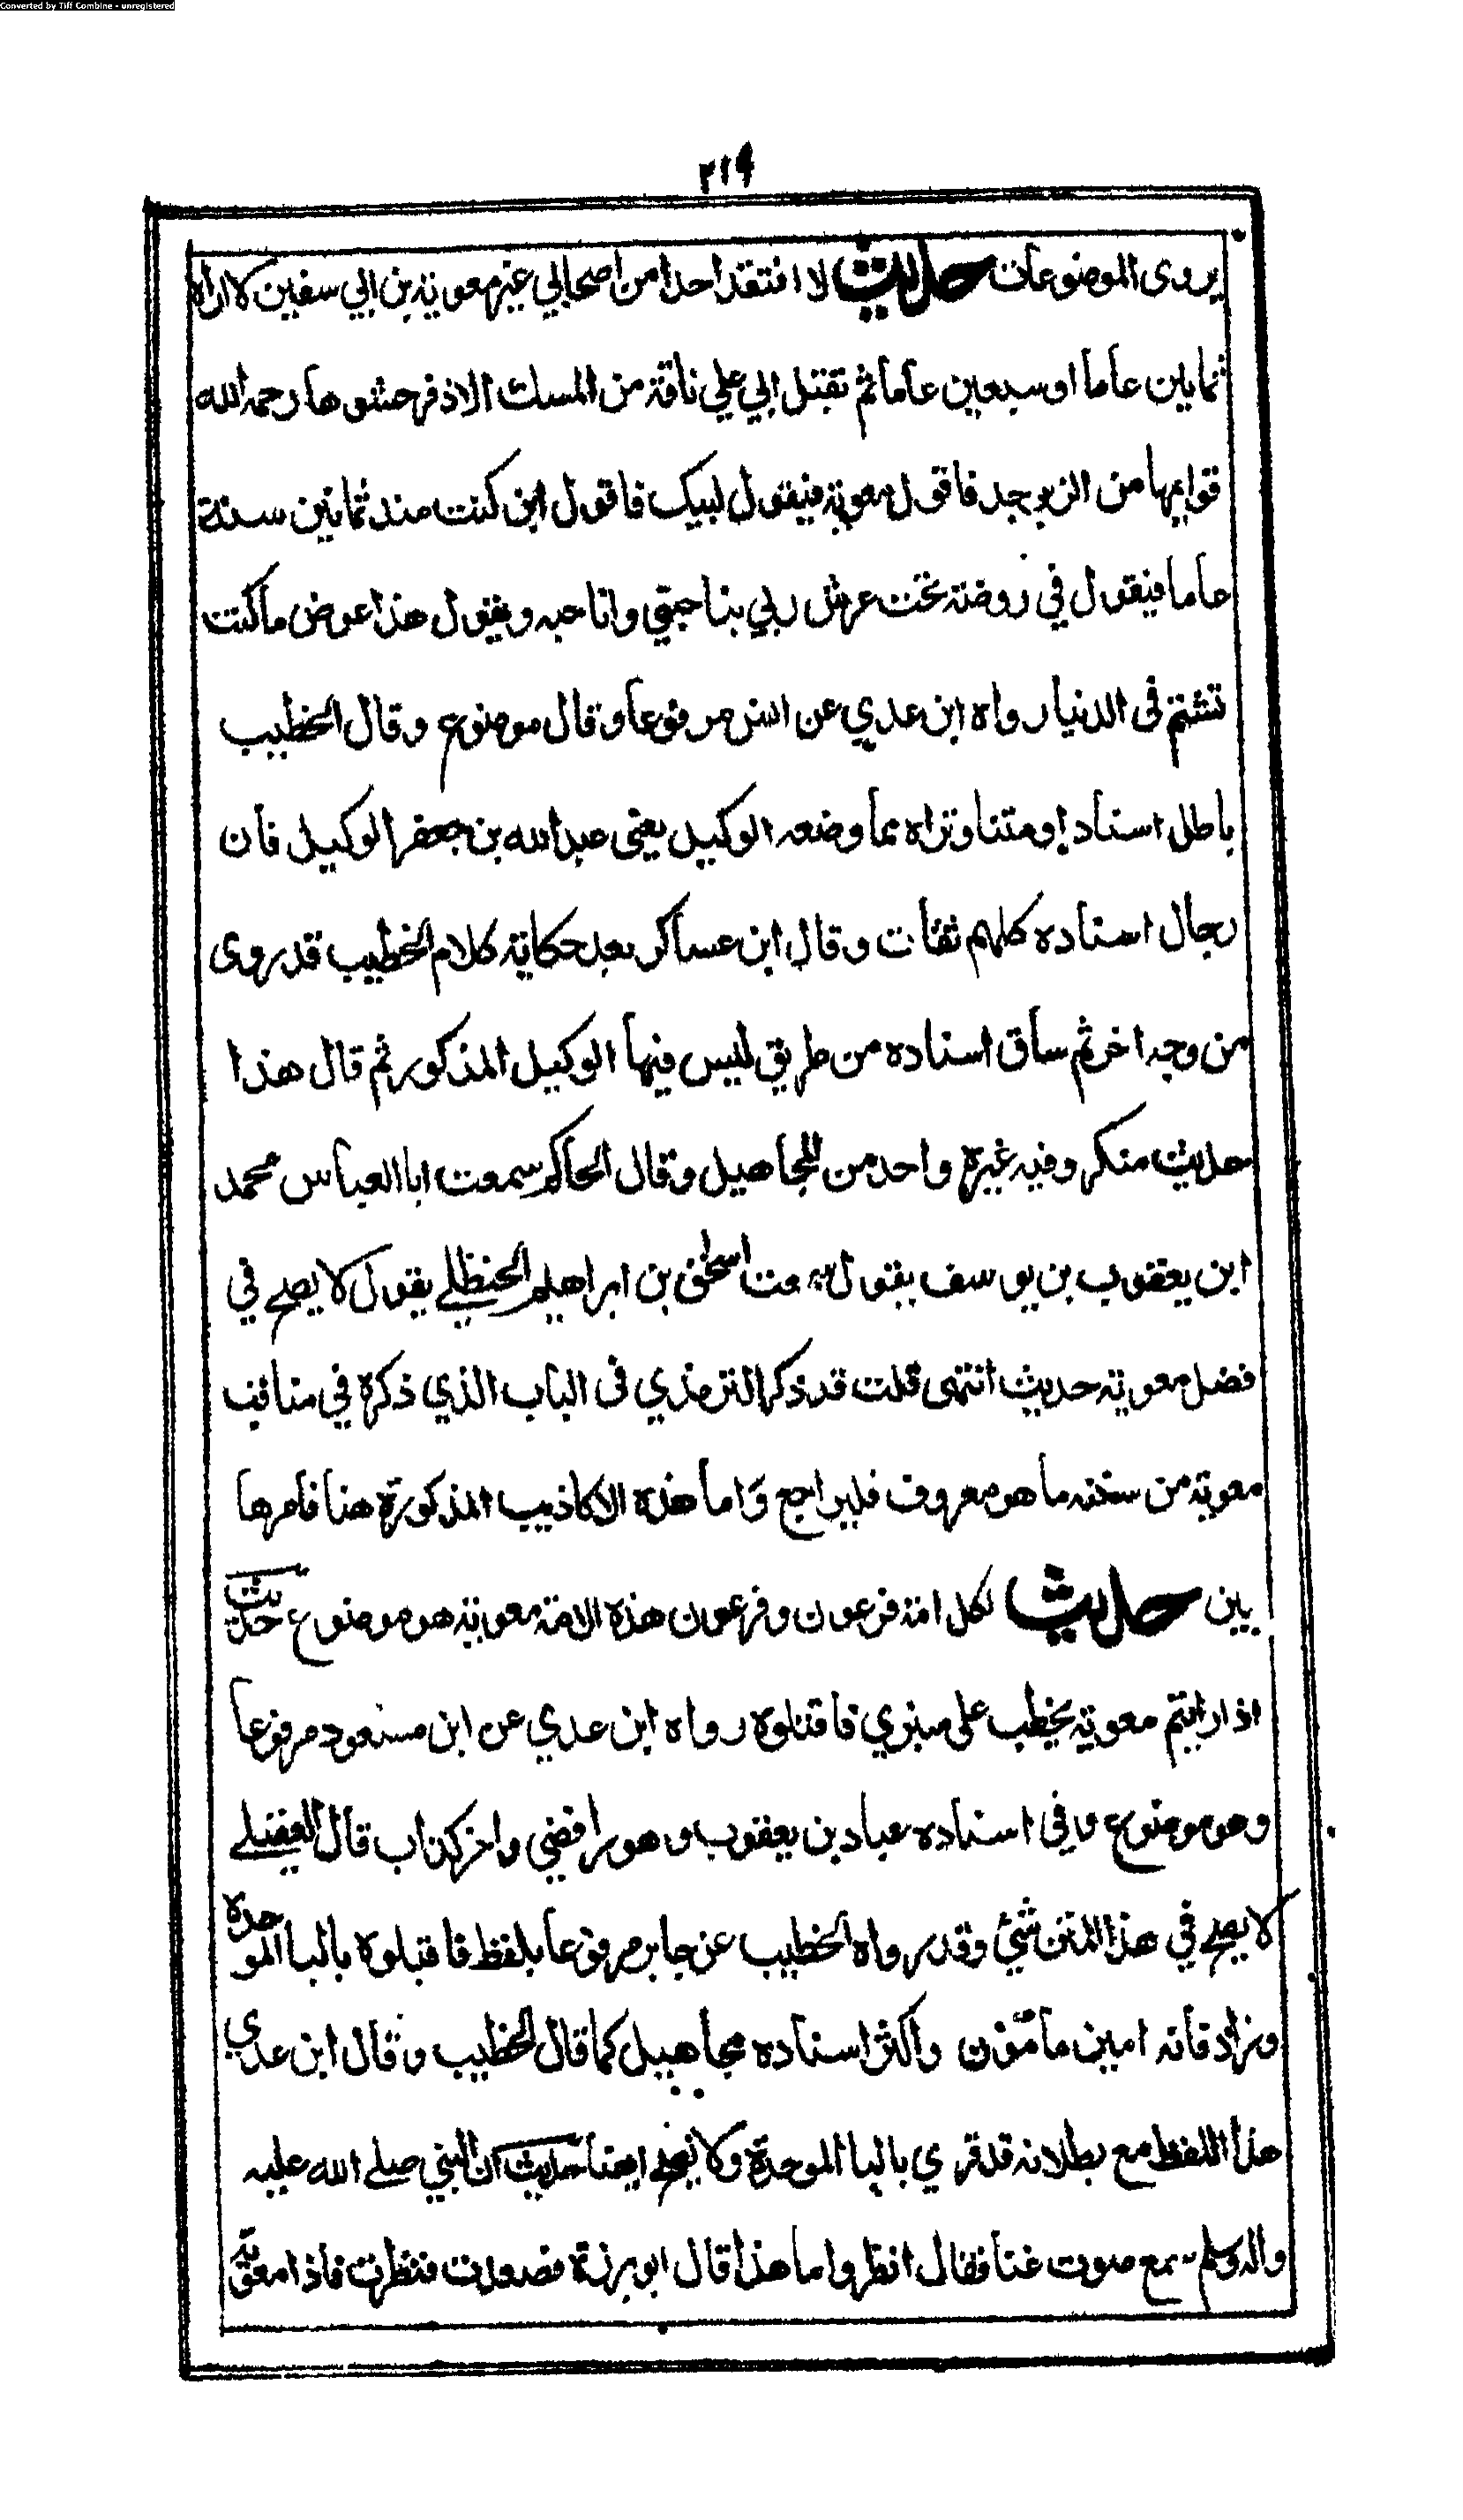 Converted by Tiff Combine - unregistered
٢١٩
يروى الموضوعات حديث لا افتقد احدا من اصحابي غير معوية بن ابي سفين لا اراه
ثمانين عاما او سبعين عاما ثم يقبل الي علي ناقة من المسك الاذفر حشوها رحمة الله
قوايمها من الزبرجد فاقول معوية فيقول لبيك فاقول اين كنت منذ ثمانين سنة
عاما فيقول في روضة تحت عرش ربي يناجيني واناجيه ويقول هذا عوض ما كنت
تشتم فى الدنيا رواه ابن عدي عن انس مرفوعا وقال موضوع وقال الخطيب
باطل اسنادا ومتنا ونراه مما وضعه الوكيل يعني عبدالله بن جعفر الوكيل فان
رجال اسناده كلهم ثقات وقال ابن عساكر بعد حكاية كلام الخطيب قد روى
من وجه اخر ثم ساق اسناده من طريق ليس فيها الوكيل المذكور ثم قال هذا
حديث منكر وفيه غيرة واحد من المجاهيل وقال الحاكم سمعت ابا العباس محمد
ابن يعقوب بن يوسف يقول سمعت اسحق بن ابراهيم الحنظلے يقول لا يصح في
فضل معوية حديث انتهى قلت قد ذكر الترمذي فى الباب الذي ذكره في مناقب
معوية من سننه ما هو معروف فليراجع واما هذه الاكاذيب المذكورة هنا فامرها
بين حديث لكل امة فرعون وفرعون هذه الامة معوية هو موضوع حديث
اذا رايتم معوية يخطب على منبري فاقتلوه رواه ابن عدي عن ابن مسعود مرفوعا
وهو موضوع وفي اسناده عباد بن يعقوب وهو رافضي واخر كذاب قال العقيلے
لا يصح في هذا المتن شئ وقد رواه الخطيب عن جابر مرفوعا بلفظ فاقبلوه بالبا الموحدة
وزاد فانه امين مامون واكثر اسناده مجاهيل كما قال الخطيب وقال ابن عدي
هذا اللفظ مع بطلانه قد قري بالبا الموحدة ولا يصح ايضا حديث ان النبي صلے الله عليه
واله وسلم سمع صوت غنا فقال انظروا ما هذا قال ابو برزة فصعدت فنظرت فاذا معوية